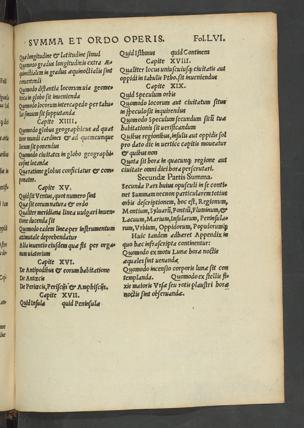 SVMMA ET ORDO OPERIS. Fol. LVI.
Quæ longitudine & latitudine simul
Quomodo gradus longitudinũ extra Aequinoctialem
in gradus æquinoctialis sint
inuertendi
Quomodo distantia locorum via geometrica
in globo sit inuenienda
Quomodo locorum intercapedo per tabulas
sinuum sit supputanda
Capite XIIII.
Quomodo globus geographicus ad quatuor
mundi cardines & ad quemcunque
locum sit ponendus
Quomodo ciuitates in globo geographico
sint locandæ
Qua ratione globus conficiatur & componatur
Capite XV.
Quid sit Ventus, quot numero sint
Quæ sit eorum natura & ordo
Qualiter meridiana linea vulgari inuentione
ducenda sit
Quomodo eadem linea per instrumentum
animate deprehendatur
Alia inuentio eiusdem quæ fit per organum
viatorum
Capite XVI.
De Antipodibus & eorum habitatione
De Antœcis
De Periœcis, Periscijs & Amphiscijs,
Capite XVII.
Quid Insula quid Peninsula
Quid Isthmus quid Continens
Capite XVIII.
Qualiter locus vniuscuiusq; ciuitatis aut
oppidi in tabulis Ptho. sit inueniendus
Capite XIX.
Quid Speculum orbis
Quomodo locorum aut ciuitatum situs
in speculo sit inquirendus
Quomodo Speculum secundum situ tuæ
habitationis sit verificandum
Quibus regionibus, insulis aut oppidis sol
pro dato die in vertice capitis moueatur
& quibus non
Quota sit hora in quacunq; regione aut
ciuitate omni diei hora perscrutari.
Secundæ Partis Summa.
Secunda Pars huius opusculi in se continet
Summam necnon particularem totius
orbis descriptionem, hoc est, Regionum,
Montium, Syluarũ, Pontũ, Fluminum, &
Lacuum, Marium, Insularum, Peninsularum,
Vrbium, Oppidorum, Populorumq;
Huic tandem adhæret Appendix in
quo hæc infrascripta continentur:
Quomodo ex motu Lunæ horæ noctis
æquales sint venandæ
Quomodo incensio corporis lunæ sit contemplanda.
Quomodo ex stellis fixis
maioris Vrsæ seu rotis plaustri horæ
noctis sint obseruandæ.